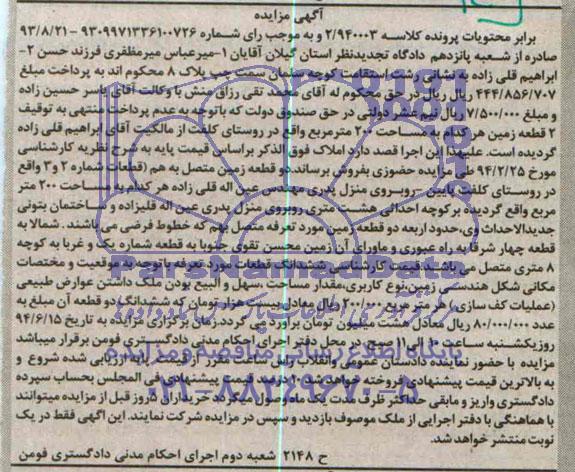 آگهی مزایده
برابر محتویات پرونده کلاسه ۲/۹۴۰۰۰۳ و به موجب رای شماره ۹۳۰۹۹۷۱۳۳۶۱۰۰۷۲۶ -۹۳/۸/۲۱
صادره از شعبه پانزدهم دادگاه تجدیدنظر استان گیلان آقایان ۱-میرعباس میرمظفری فرزند حسن ۲-
ابراهیم قلی زاده به نشانی رشت استقامت کوچه سلمان سمت چپ پلاک ۸ محکوم اند به پرداخت مبلغ
۴۴۴/۸۵۶/۷۰۷ ریال بال در حق محکوم له آقای محمد تقی رزاق منش با وکالت آقای یاسر حسین زاده
و مبلغ ۷/۵۰۰/۰۰۰ ریال نیم عشر دولتی در حق صندوق دولت که باتوجه به عدم پرداخت منتهی به توقیف
۲ قطعه زمین هر کدام به مساحت ۲۰۰ مترمربع واقع در روستای کلفت از مالکیت آقای ابراهیم قلی زاده
گردیده است. علیهذا این اجرا قصد دارد املاک فوق الذکر براساس قیمت پایه به شرح نظریه کارشناسی
مورخ ۹۴/۲/۲۵ طی مزایده حضوری بفروش برساند.دو قطعه زمین متصل به هم (قطعات شماره ۲ و۳ واقع
در روستای کلفت پایین -روبروی منزل پدری مهندس عین اله قلی زاده هر کدام به مساحت ۲۰۰ متر
مربع واقع گردیده بر کوچه احداثی هشت متری روبروی منزل پدری عین اله قلیزاده و ساختمان بتونی
جدیدالاحداث وی،حدود اربعه دو قطعه زمین مورد تعرفه متصل بهم که خطوط فرضی می باشند. شمالا به
قطعه چهار شرقا به راه عبوری و ماورای آن زمین محسن تقوی جنوبا به قطعه شماره یک و غربا به کوچه
۸ متری متصل می باشد. قیمت کارشناسی ششدانگ قطعات مورد تعرفه باتوجه به موقعیت و مختصات
مکانی شکل هندسی زمین،نوع کاربری،مقدار مساحت ،سهل و البیع بودن ملک داشتن عوارض طبیعی
(عملیات کف سازی) هر متر مربع ۲۰۰/۰۰۰ ریال معادل بیست هزار تومان که ششدانگ دو قطعه آن مبلغ به
عدد ۸۰/۰۰۰/۰۰۰ ریال معادل هشت میلیون تومان برآورد می گردد.زمان برگزاری مزایده به تاریخ ۹۴/۶/۱۵
روز یکشنبه ساعت ۱۰ الی ۱۱ صبح در محل دفتر اجرای احکام مدنی دادگستری فومن برقرار میباشد
مزایده با حضور نماینده دادستان عمومی وانقلاب راس ساعت مقرر از قیمت پایه ارزیابی شده شروع و
به بالاترین قیمت پیشنهادی فروخته خواهد شد. درصد قیمت پیشنهادی فی المجلس بحساب سپرده
دادگستری واریز و مابقی حداکثر ظرف مدت یک ماه وصول میگردد خریداران ۵ روز قبل از مزایده میتوانند
با هماهنگی با دفتر اجرایی از ملک موصوف بازدید و سپس در مزایده شرکت نمایند. این آگهی فقط در یک
نوبت منتشر خواهد شد.
ح ۲۱۴۸ شعبه دوم اجرای احکام مدنی دادگستری فومن
ParsNamadData
پایگاه اطلاع رسانی مناقصه و مزایده
۰۲۱-۸۸۳۴۹۶۷۰-۵